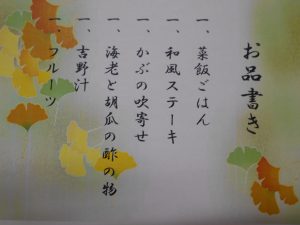 お品書き
一、菜飯ごはん
一、和風ステーキ
一、かぶの吹寄せ
一、海老と胡瓜の酢の物
一、吉野汁
一、フルーツ